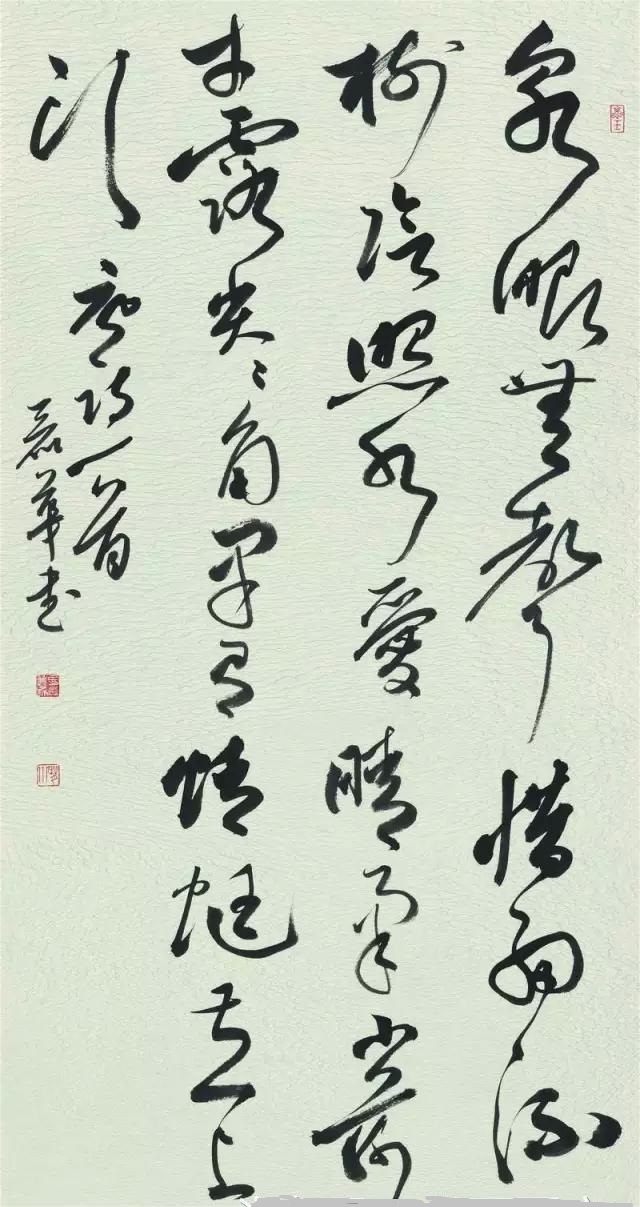 泉眼無聲惜細流
樹陰照水愛晴柔小荷
才露尖〻角早有蜻蜓立上
頭
唐詩一首
華書